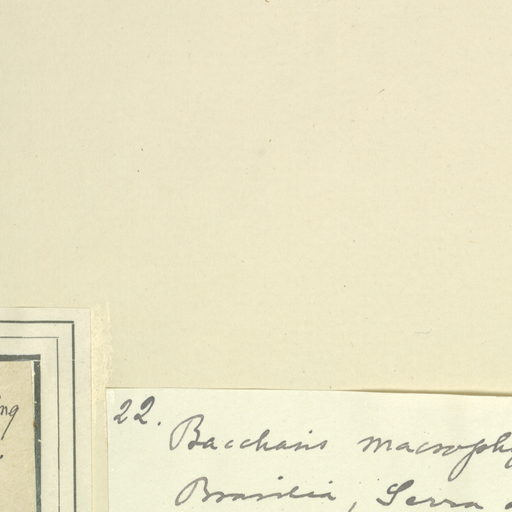 ng
22.
Baccharis macrophy
Brasilia, Serra